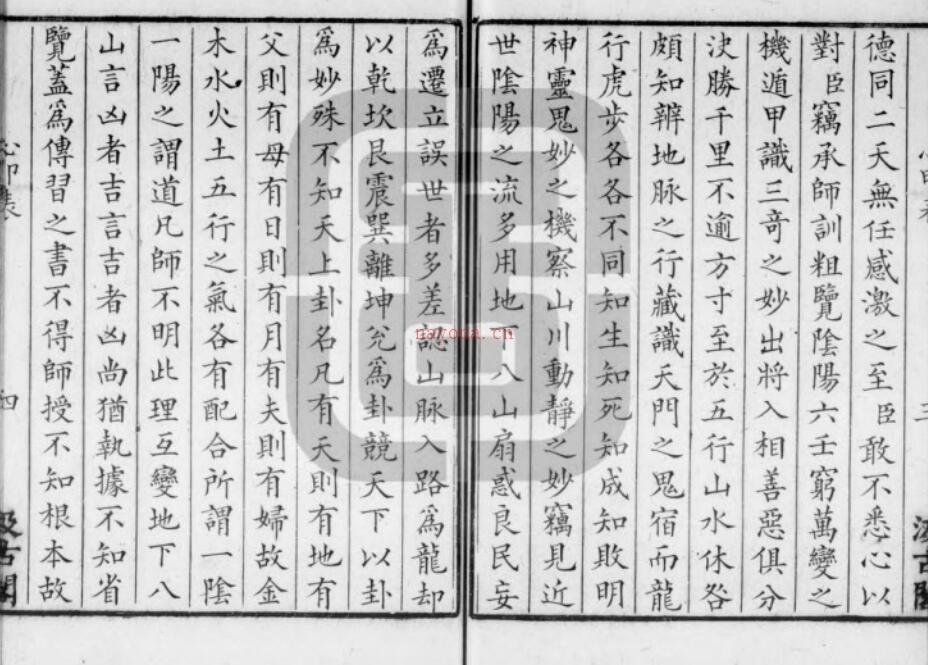 德同二天無任感激之至臣敢不悉心以
對臣竊承師訓粗覽陰陽六壬窮萬變之
機遁甲識三奇之妙出將入相善惡俱分
決勝千里不逾方寸至於五行山水休咎
頗知辨地脉之行藏識天門之鬼宿而龍
行虎步各各不同知生知死知成知敗明
神靈鬼妙之機察山川動靜之妙竊見近
世陰陽之流多用地下八山扇惑良民妄
為遷立誤世者多差認山脉入路為龍却
以乾坎艮震巽離坤兊為卦競天下以卦
為妙殊不知天上卦名凡有天則有地有
父則有母有日則有月有夫則有婦故金
木水火土五行之氣各有配合所謂一陰
一陽之謂道凡師不明此理互變地下八
山言凶者吉言吉者凶尚猶執據不知省
覽蓋為傳習之書不得師授不知根本故
三
四
汲古閣
nayona.cn